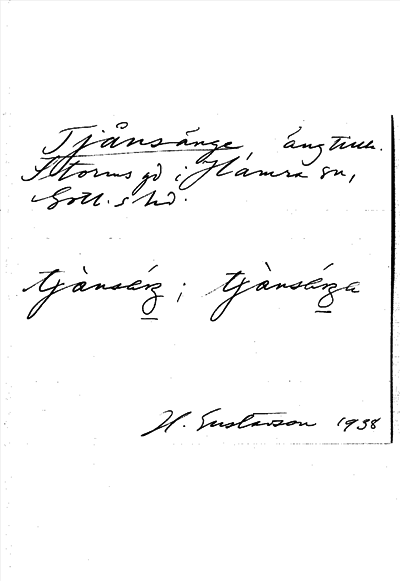 Tjånsänge, ängteck.
Storms gd i Hamra sn,
Gotl. s hd.
tjànséız; tjànséıza
H. Gustavson 1938